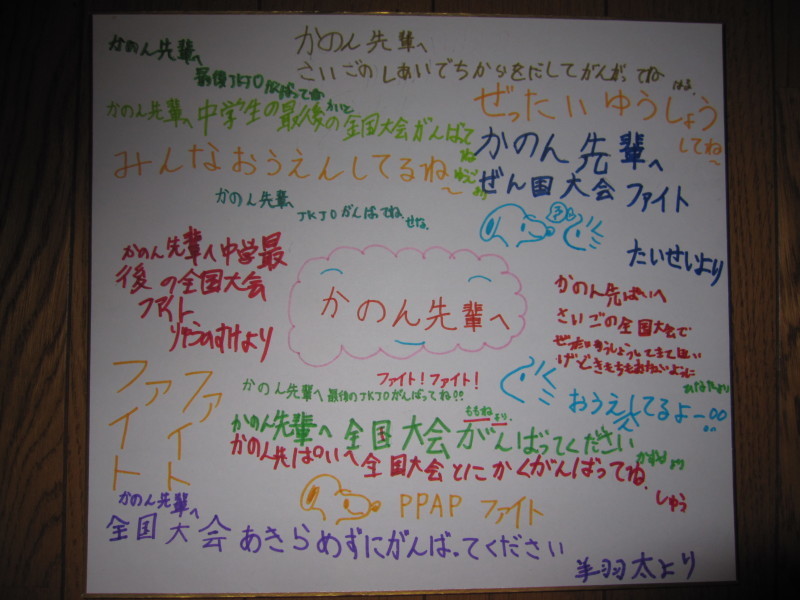 かのん先輩へ
さいごのしあいでちからをだしてがんばってね
はる
かのん先輩へ
最後JKJOがんばってね
かのん先輩へ中学生の最後の全国大会がんばて
ね
ぜったいゆうしょう
してね〜
みんなおうえんしてるね〜
かのん先輩へ
ぜん国大会ファイト
たいせいより
かのん先輩へ
JKJOがんばってね。
せな。
かのん先輩へ中学最
後の全国大会
ファイト
りゅうのすけより
かのん先輩へ
かのん先ぱいへ
さいごの全国大会で
ファイト
ファイト
ファイト！ファイト！
かのん先輩へ最後のJKJOがんばってね!!
おうえんしてるよー
ももねより。
かのん先輩へ全国大会がんばってください
かのん先ぱいへ全国大会とにかくがんばってね。
しゅう
PPAP ファイト
かのん先輩へ
全国大会あきらめずにがんばってください
羊羽太より